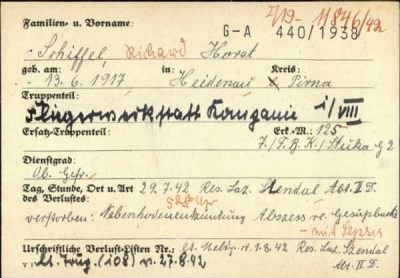 I/19- 1/846/42
Familien- u. Vorname: G-A 440/1938
Schiffel, Richard Horst
geb. am: Kreis:
13.6.1917 in Heidenau Pirna
Truppenteil:
Fliegerwerkstatt Kompanie 1/VIII
Ersatz-Truppenteil: Erk.-M.: 125
7./F.B.K./Stuka G 2
Dienstgrad:
Ob. Gefr.
Tag, Stunde, Ort u. Art 29.7.42 Res. Laz. Stendal Abt. II D.
des Verlustes: 520 Uhr
verstorben: Nebenhodenentzündung Abszess re. Gesäßbacke
- mit Sepsis
Urschriftliche Verlust-Listen Nr.: v. 1.8.42 Res. Laz. Stendal
(108) v. 27.8.42 Abt. II D.